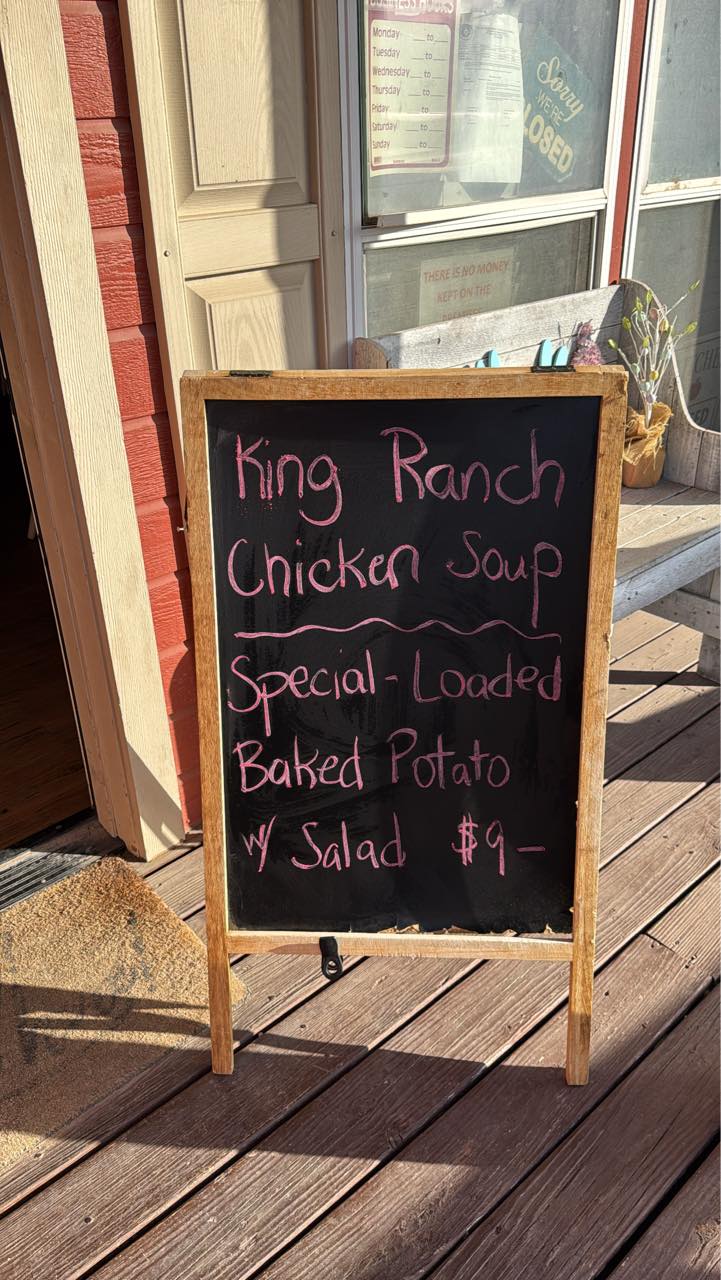 Monday to
Tuesday to
Wednesday to
Thursday to
Friday to
Saturday to
Sunday to
Sorry
WE'RE
CLOSED
THERE IS NO MONEY
KEPT ON THE
King Ranch
Chicken Soup
Special-Loaded
Baked Potato
w/ Salad $9-